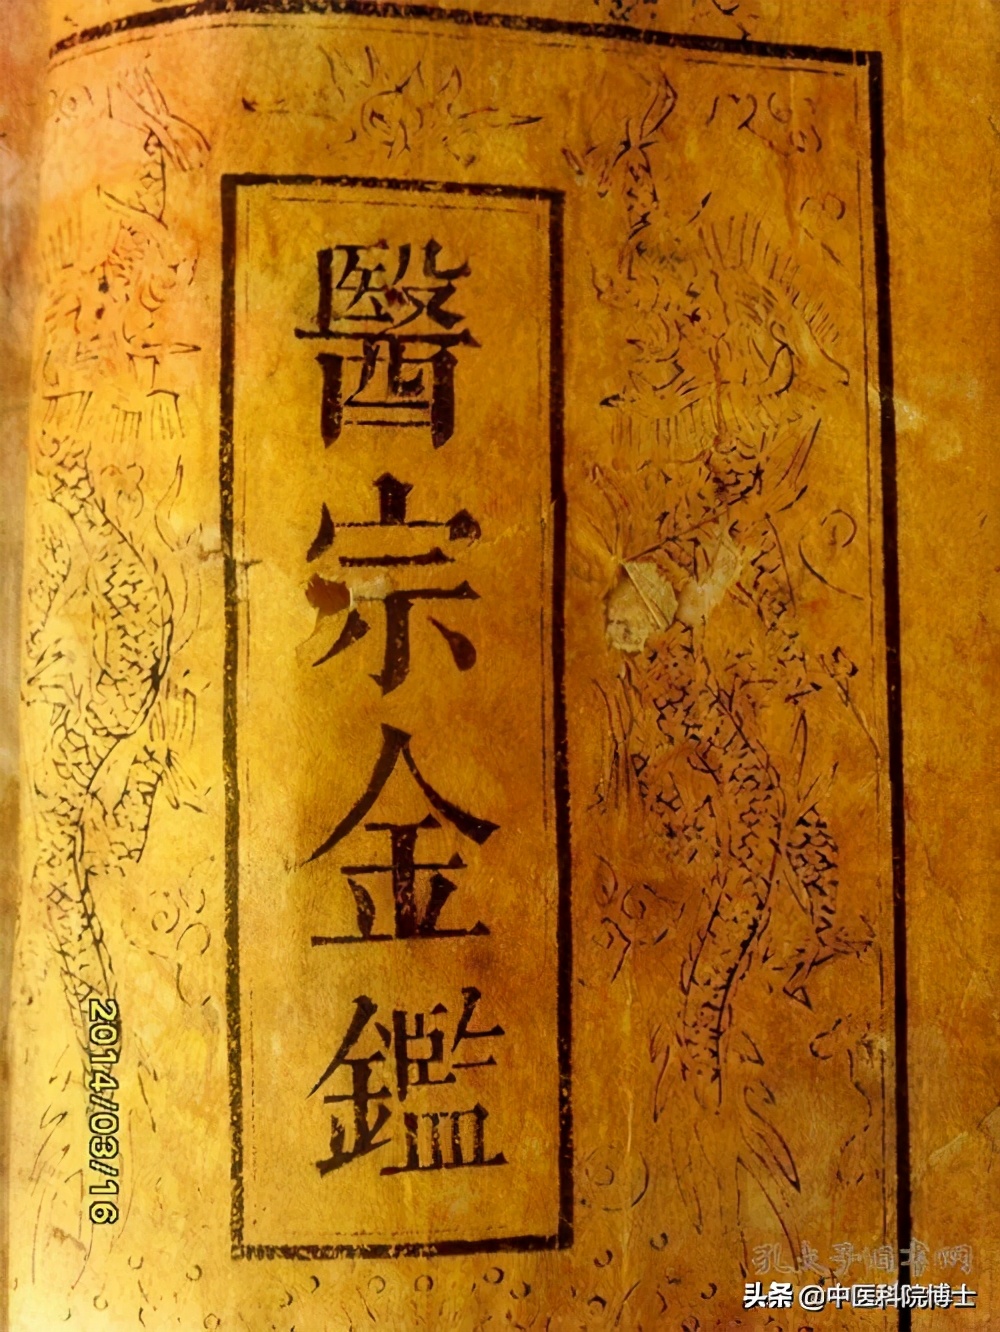 醫宗金鑑
2014/03/16
孔夫子旧书网
头条 @中医科院博士